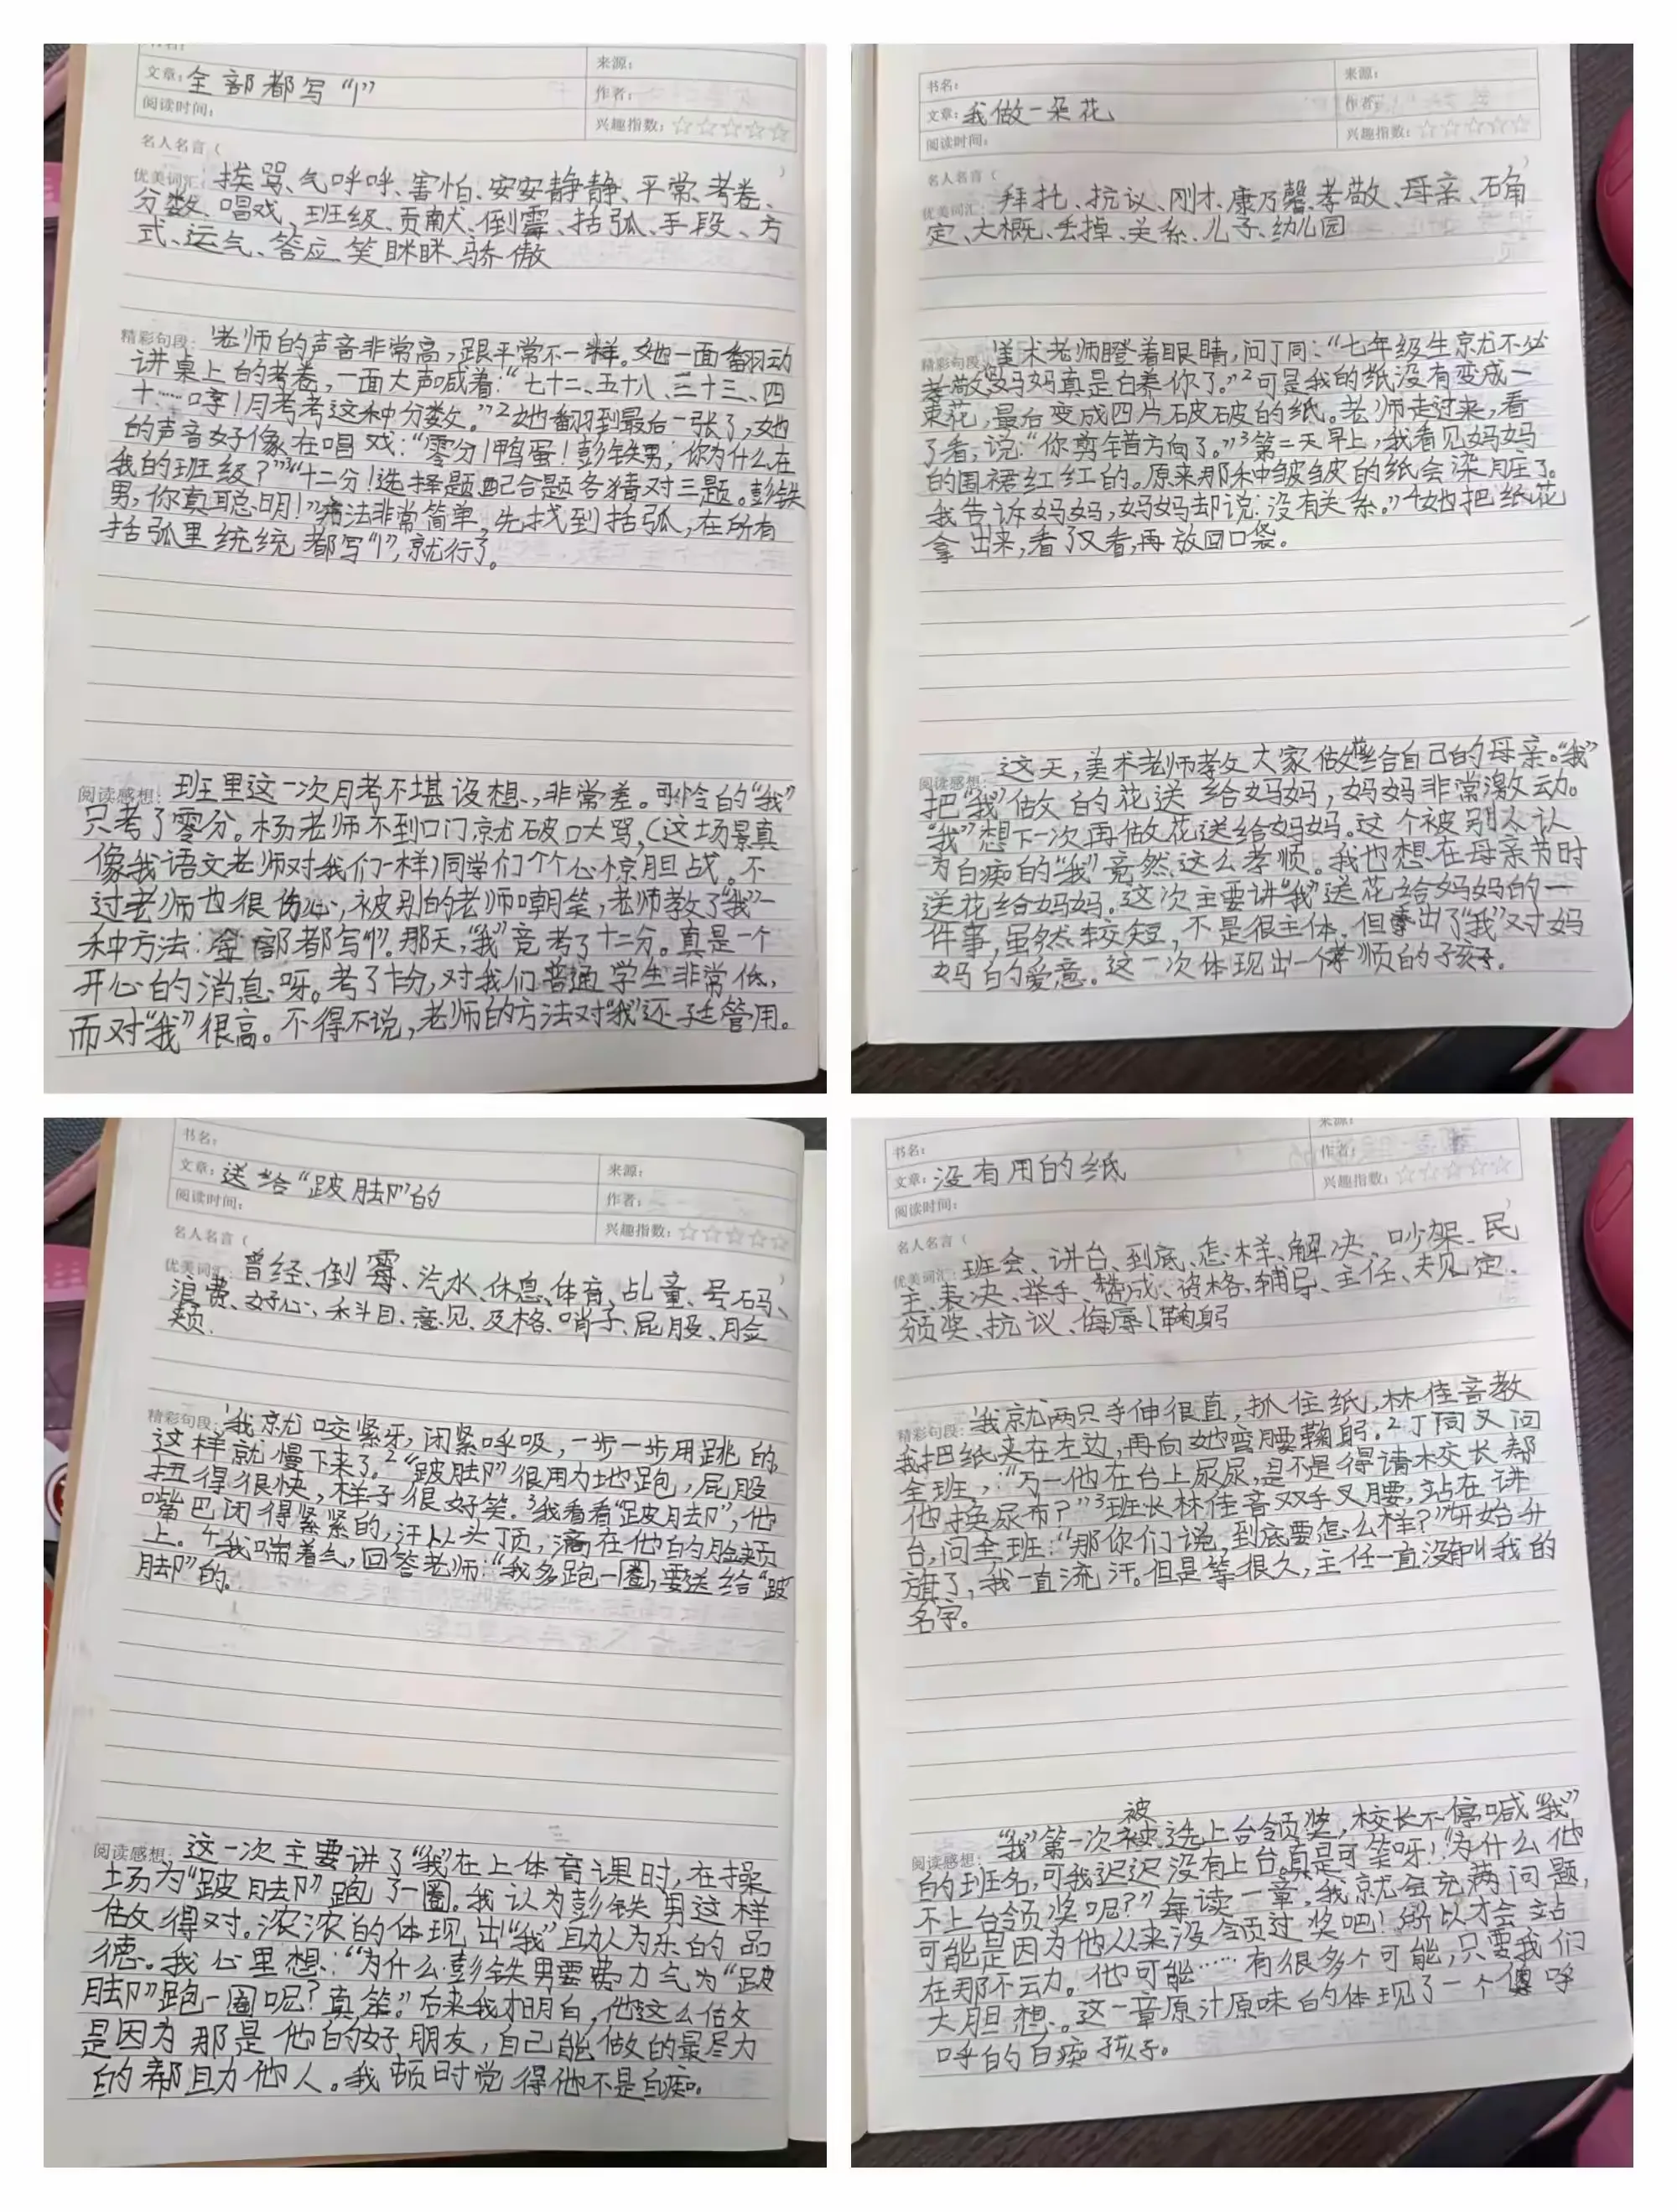 书名：
来源：
文章：全部都写“1”
作者：
阅读时间：
兴趣指数：☆☆☆☆☆
名人名言（ ）
优美词汇：挨骂、气呼呼、害怕、安安静静、平常、考卷、
分数、唱戏、班级、贡献、倒霉、括弧、手段、方
式、运气、答应、笑眯眯、骄傲
精彩句段：1老师的声音非常高，跟平常不一样。她一面翻动
讲桌上的考卷，一面大声喊着：“七十二、五十八、三十三、四
十……哼！月考考这种分数。”2她翻到最后一张了，她
的声音好像在唱戏：“零分！鸭蛋！彭铁男，你为什么在
我的班级？”3“十二分！选择题配合题各猜对三题。彭铁
男，你真聪明！”方法非常简单，先找到括弧，在所有
括弧里统统都写“1”，就行了。
阅读感想：班里这一次月考不堪设想，非常差。可怜的“我”
只考了零分。杨老师不到口门就破口大骂，（这场景真
像我语文老师对我们一样）同学们个个心惊胆战。不
过老师也很伤心，被别的老师嘲笑，老师教了“我”一
种方法：全部都写“1”。那天，“我”竟考了十二分。真是一个
开心的消息呀。考了十分，对我们普通学生非常低，
而对“我”很高。不得不说，老师的方法对“我”还挺管用。
书名：
来源：
文章：我做一朵花
作者：
阅读时间：
兴趣指数：☆☆☆☆☆
名人名言（ ）
优美词汇：拜托、抗议、刚才、康乃馨、孝敬、母亲、确
定、大概、丢掉、关系、儿子、幼儿园
精彩句段：1美术老师瞪着眼睛，问丁同：“七年级生就不必
孝敬妈妈真是白养你了。”2可是我的纸没有变成一
束花，最后变成四片破破的纸。老师走过来，看
了看，说：“你剪错方向了。”3第二天早上，我看见妈妈
的围裙红红的。原来那种皱皱皮的纸会染脏了。
我告诉妈妈，妈妈却说：没有关系。”4她把纸花
拿出来，看了又看，再放回口袋。
阅读感想：这天，美术老师教大家做花送给自己的母亲。“我”
把“我”做的花送给妈妈，妈妈非常激动。
“我”想下一次再做花送给妈妈。这个被别人认
为白痴的“我”竟然这么孝顺。我也想在母亲节时
送花给妈妈。这次主要讲“我”送花给妈妈的一
件事，虽然较短，不是很主体，但写出了“我”对妈
妈的爱意。这一次体现出一个孝顺的子孩子。
书名：
文章：送给“跛脚”的
来源：
阅读时间：
作者：
兴趣指数：☆☆☆☆☆
名人名言（ ）
优美词汇：曾经、倒霉、汽水、休息、体育、乩童、号码、
浪费、好心、科目、意见、及格、哨子、屁股、脸
颊
精彩句段：1我就咬紧牙，闭紧呼吸，一步一步用跳的，
这样就慢下来了。2“跛脚”很用力地跑，屁股
扭得很快，样子很好笑。3我看看“跛脚”，他
嘴巴闭得紧紧的，汗从头顶，滴在他的脸颊
上。4我喘着气，回答老师：“我多跑一圈，要送给“跛
脚”的。
阅读感想：这一次主要讲了“我”在上体育课时，在操
场为“跛脚”跑了一圈。我认为彭铁男这样
做得对。浓浓的体现出“我”助人为乐的品
德。我心里想：“为什么彭铁男要费力气为“跛
脚”跑一圈呢？真笨。”后来我才明白，他这么做
是因为那是他的好朋友，自己能做的最尽力
的帮助他人。我顿时觉得他不是白痴。
书名：
来源：
文章：没有用的纸
作者：
阅读时间：
兴趣指数：☆☆☆☆☆
名人名言（ ）
优美词汇：班会、讲台、到底、怎样、解决、吵架、民
主、表决、举手、赞成、资格、辅导、主任、规定、
颁奖、抗议、侮辱、鞠躬
精彩句段：1我就两只手伸很直，抓住纸，林佳音教
我把纸夹在左边，再向她弯腰鞠躬。2丁同又问
全班，：“万一他在台上尿尿，是不是得请校长帮
他换尿布？”3班长林佳音双手叉腰，站在讲
台，问全班：“那你们说，到底要怎么样？”开始升
旗了，我一直流汗。但是等很久，主任一直没叫我的
名字。
被
阅读感想：“我”第一次被选上台领奖，校长不停喊“我”
的班名，可我迟迟没有上台。真是可笑呀！“为什么他
不上台领奖呢？”每读一章，我就会充满问题，
可能是因为他从来没领过奖吧！所以才会站
在那不动。他可能……有很多个可能，只要我们
大胆想。这一章原汁原味的体现了一个傻呼
呼的白痴孩子。